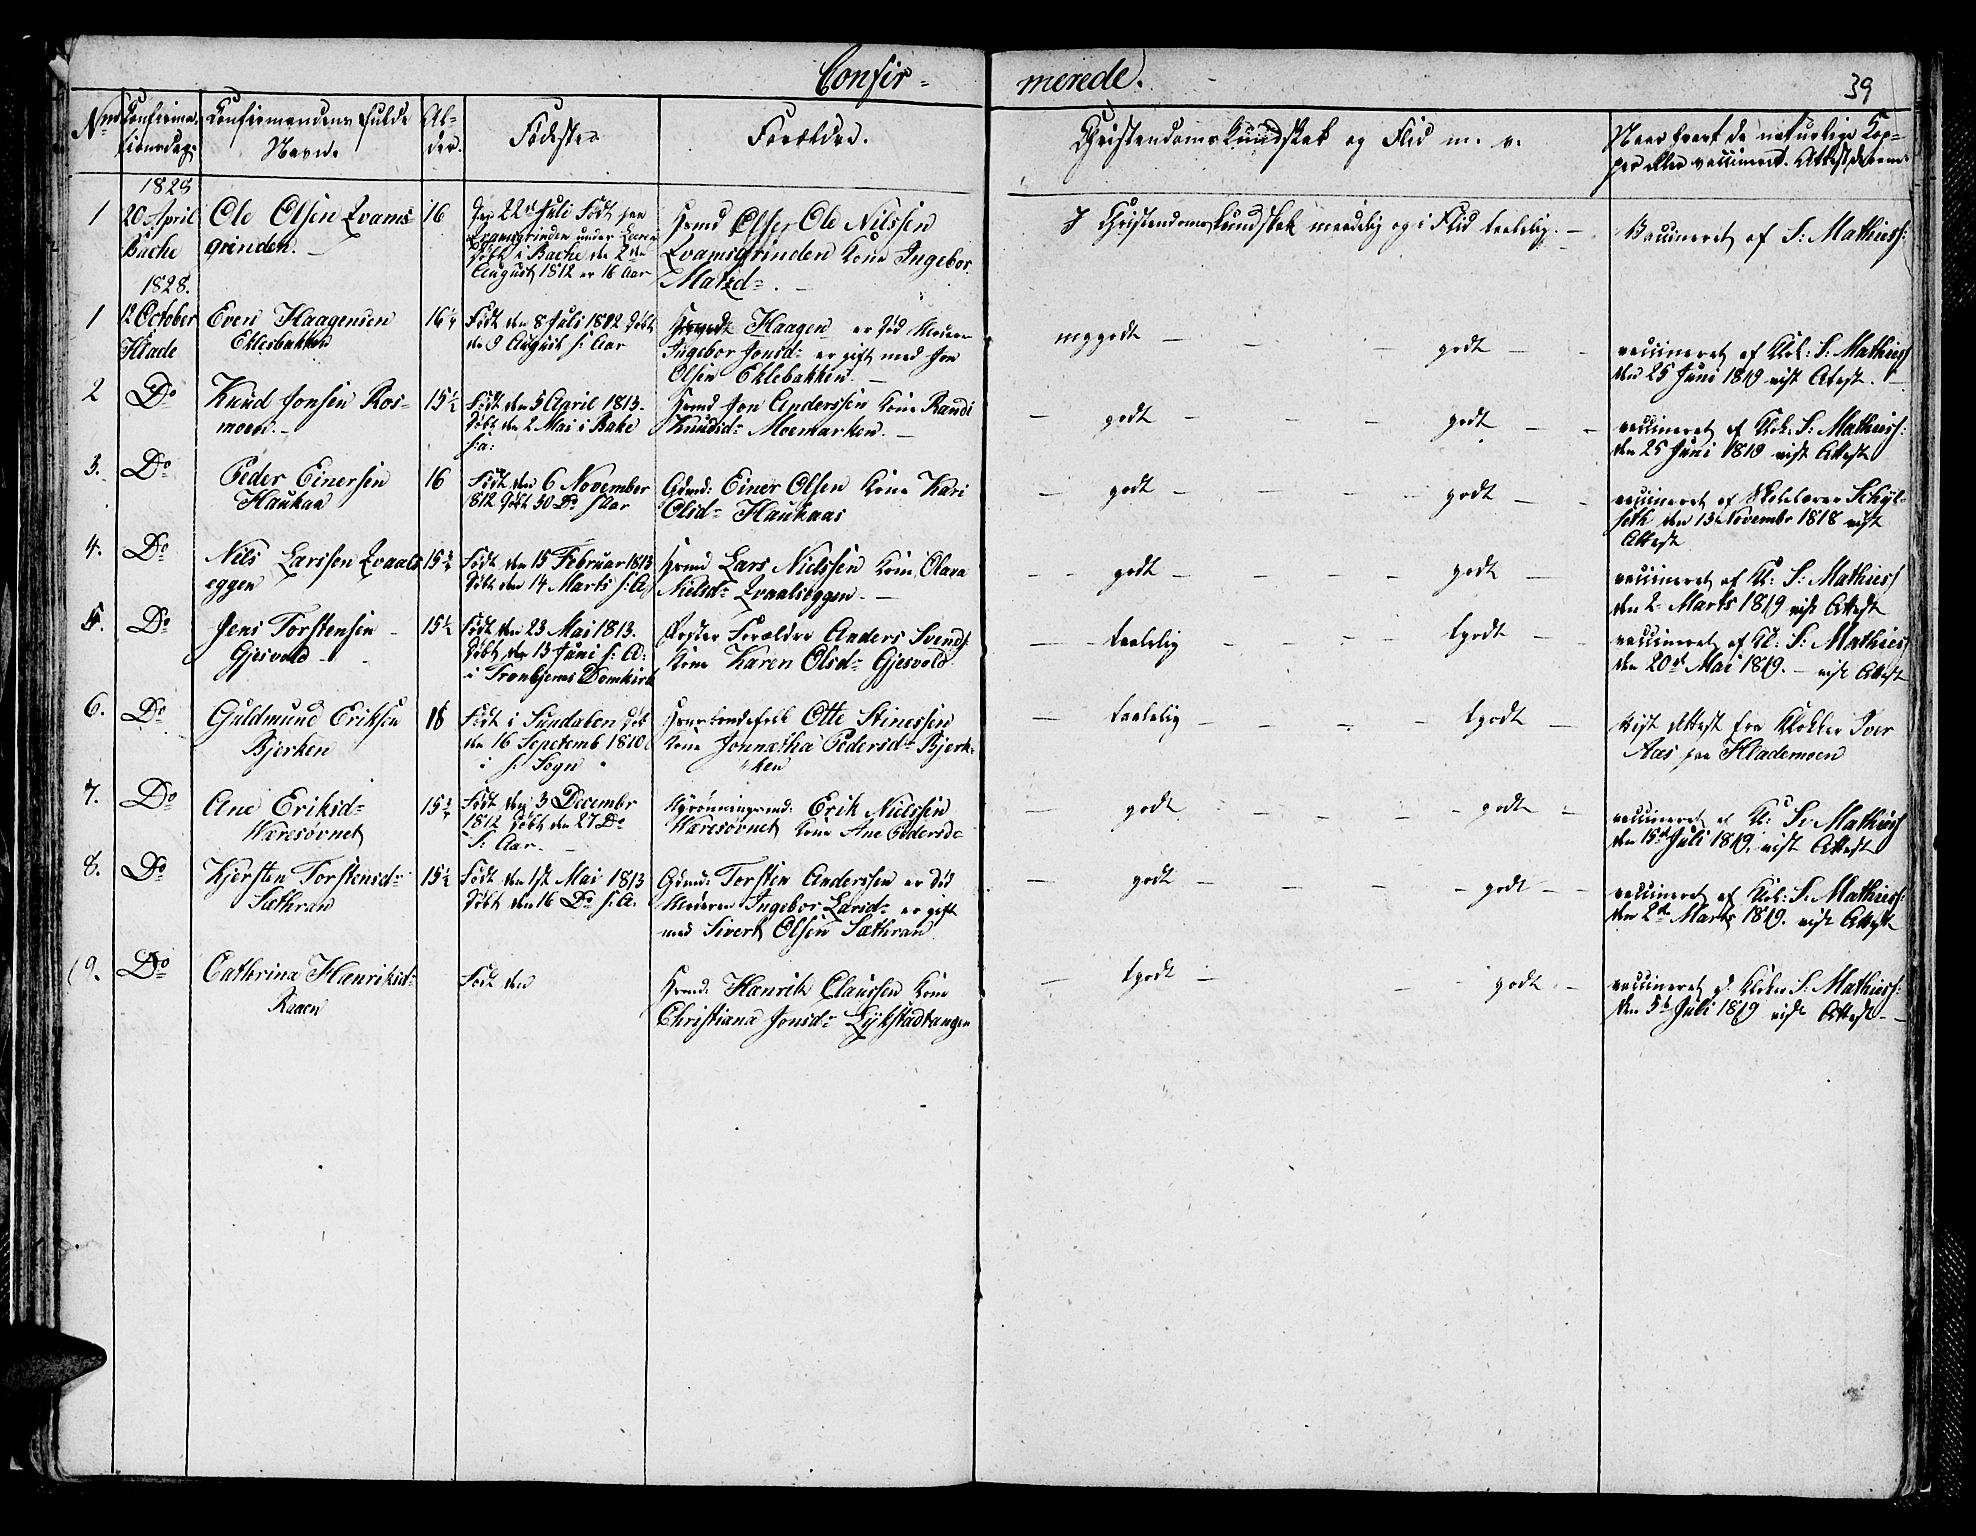 Confir-
merede.
39
No Confirma-
tionsdag.
Confirmandens fulde
Navne
Al-
der.
Fødested
Forældre.
Christendomskundskab og Flid m. v.
Naar havt de naturlige Kop-
per eller vaccineret. Attest derom.
1829
1 20 April
i
Bache
Ole Olsen Qvams
grinden.
16
Den 22de Juli Født paa
Qvamsgrinden under
døbt i Bache den 2den
August 1812 er 16 Aar
Ole Nilssen
Qvamsgrinden Kone Ingebor
Matsd:
I Christendomskundskab maadelig og i Flid taalelig.
Vaccineret af S: Mathiess:
1828.
1 12 October
Hlade
Even Haagensen
Eklesbakken
16 1/4
Født den 8 Juli 1812 døbt
den 9 August s: Aar
Haagen er død Moder
Ingebor Jonsd: er gift med Jon
Olsen Eklebakken.
mggodt godt
vaccineret af Klok: S: Mathiess
den 25 Juni 1819 vist Atest.
2 Do
Knud Jonsen Ros-
moen.
15 1/2
Født den 5 April 1813.
døbt den 2 Mai i Bake
s: a:
Hsmd Jon Anderssen Kone Randi
Knudsd: Moemarken.
godt godt
vaccineret af Klok: S: Mathiess:
den 25 Juni 1819 vist Attest
3. Do
Peder Einersen
Haukaa
16
Født den 6 November
1812 døbt 30 Do s Aar
Gdmd: Einer Olsen Kone Kari
Olsd: Haukaas
godt godt
vaccineret af Skolelærer Schøl-
seth den 13 Novembr 1818 vist
Attest
4. Do
Nils Larssen Qvaals
eggen
15 3/4
Født den 15 Februar 1813
døbt den 14 Marts s: A:
Hsmd Lars Nielssen Kone Olava
Nielsd: Qvaalseggen.
godt godt
vaccineret af Kl: S: Mathiess
den 2 Marts 1819 vist Attest
5. Do
Jens Torstensen
Gjesvold
15 1/2
Født den 23 Mai 1813.
døbt den 13 Juni s: A:
i Tronhjems Domkirk
Foster Forældre Anders Svends:
Kone Karen Olsd: Gjesvold
taalelig tgodt
vaccineret af Kl: S: Mathiess
den 20de Mai 1819. vist Attest
6. Do
Guldmund Eriksen
Bjerken
18
Født i Sundalen døbt
den 16 Sepetemb 1810
i s: Sogn
Otte Stinessen
Kone Jonnetha Pedersd: Bjerk-
ken
taalelig tgodt
vist Attest fra Klokker Iver
Aas paa Hlademoen
7. Do
Ane Eriksd:
Væresøvnet
15 3/4
Født den 3 Decembr
1812 døbt den 27 Do
s: Aar.
Erik Nielssen
Væresøvnet Kone Ane Pedersd:
godt godt
vaccineret af Kl: S: Mathiess
den 15de Juli 1819. vist Attest
8. Do
Kjersten Torstensd:
Sæthran
15 1/2
Født den 1ste Mai 1813
døbt den 16 Do s: A:
Gdmd: Torsten Anderssen er død
Moderen Ingebor Larsd: er gift
med Sivert Olsen Sæthran
godt godt
vaccineret af Klok: S: Mathiess:
den 2de Marts 1819. vist Attest
9. Do
Cathrina Hanriksd:
Raaen
Født den
Hsmd: Hanrik Claussen Kone
Christiana Jonsd: Lykstadtangen
tgodt godt
vaccineret af Klokr: S: Mathiess:
den 5te Juli 1819 vist Attest